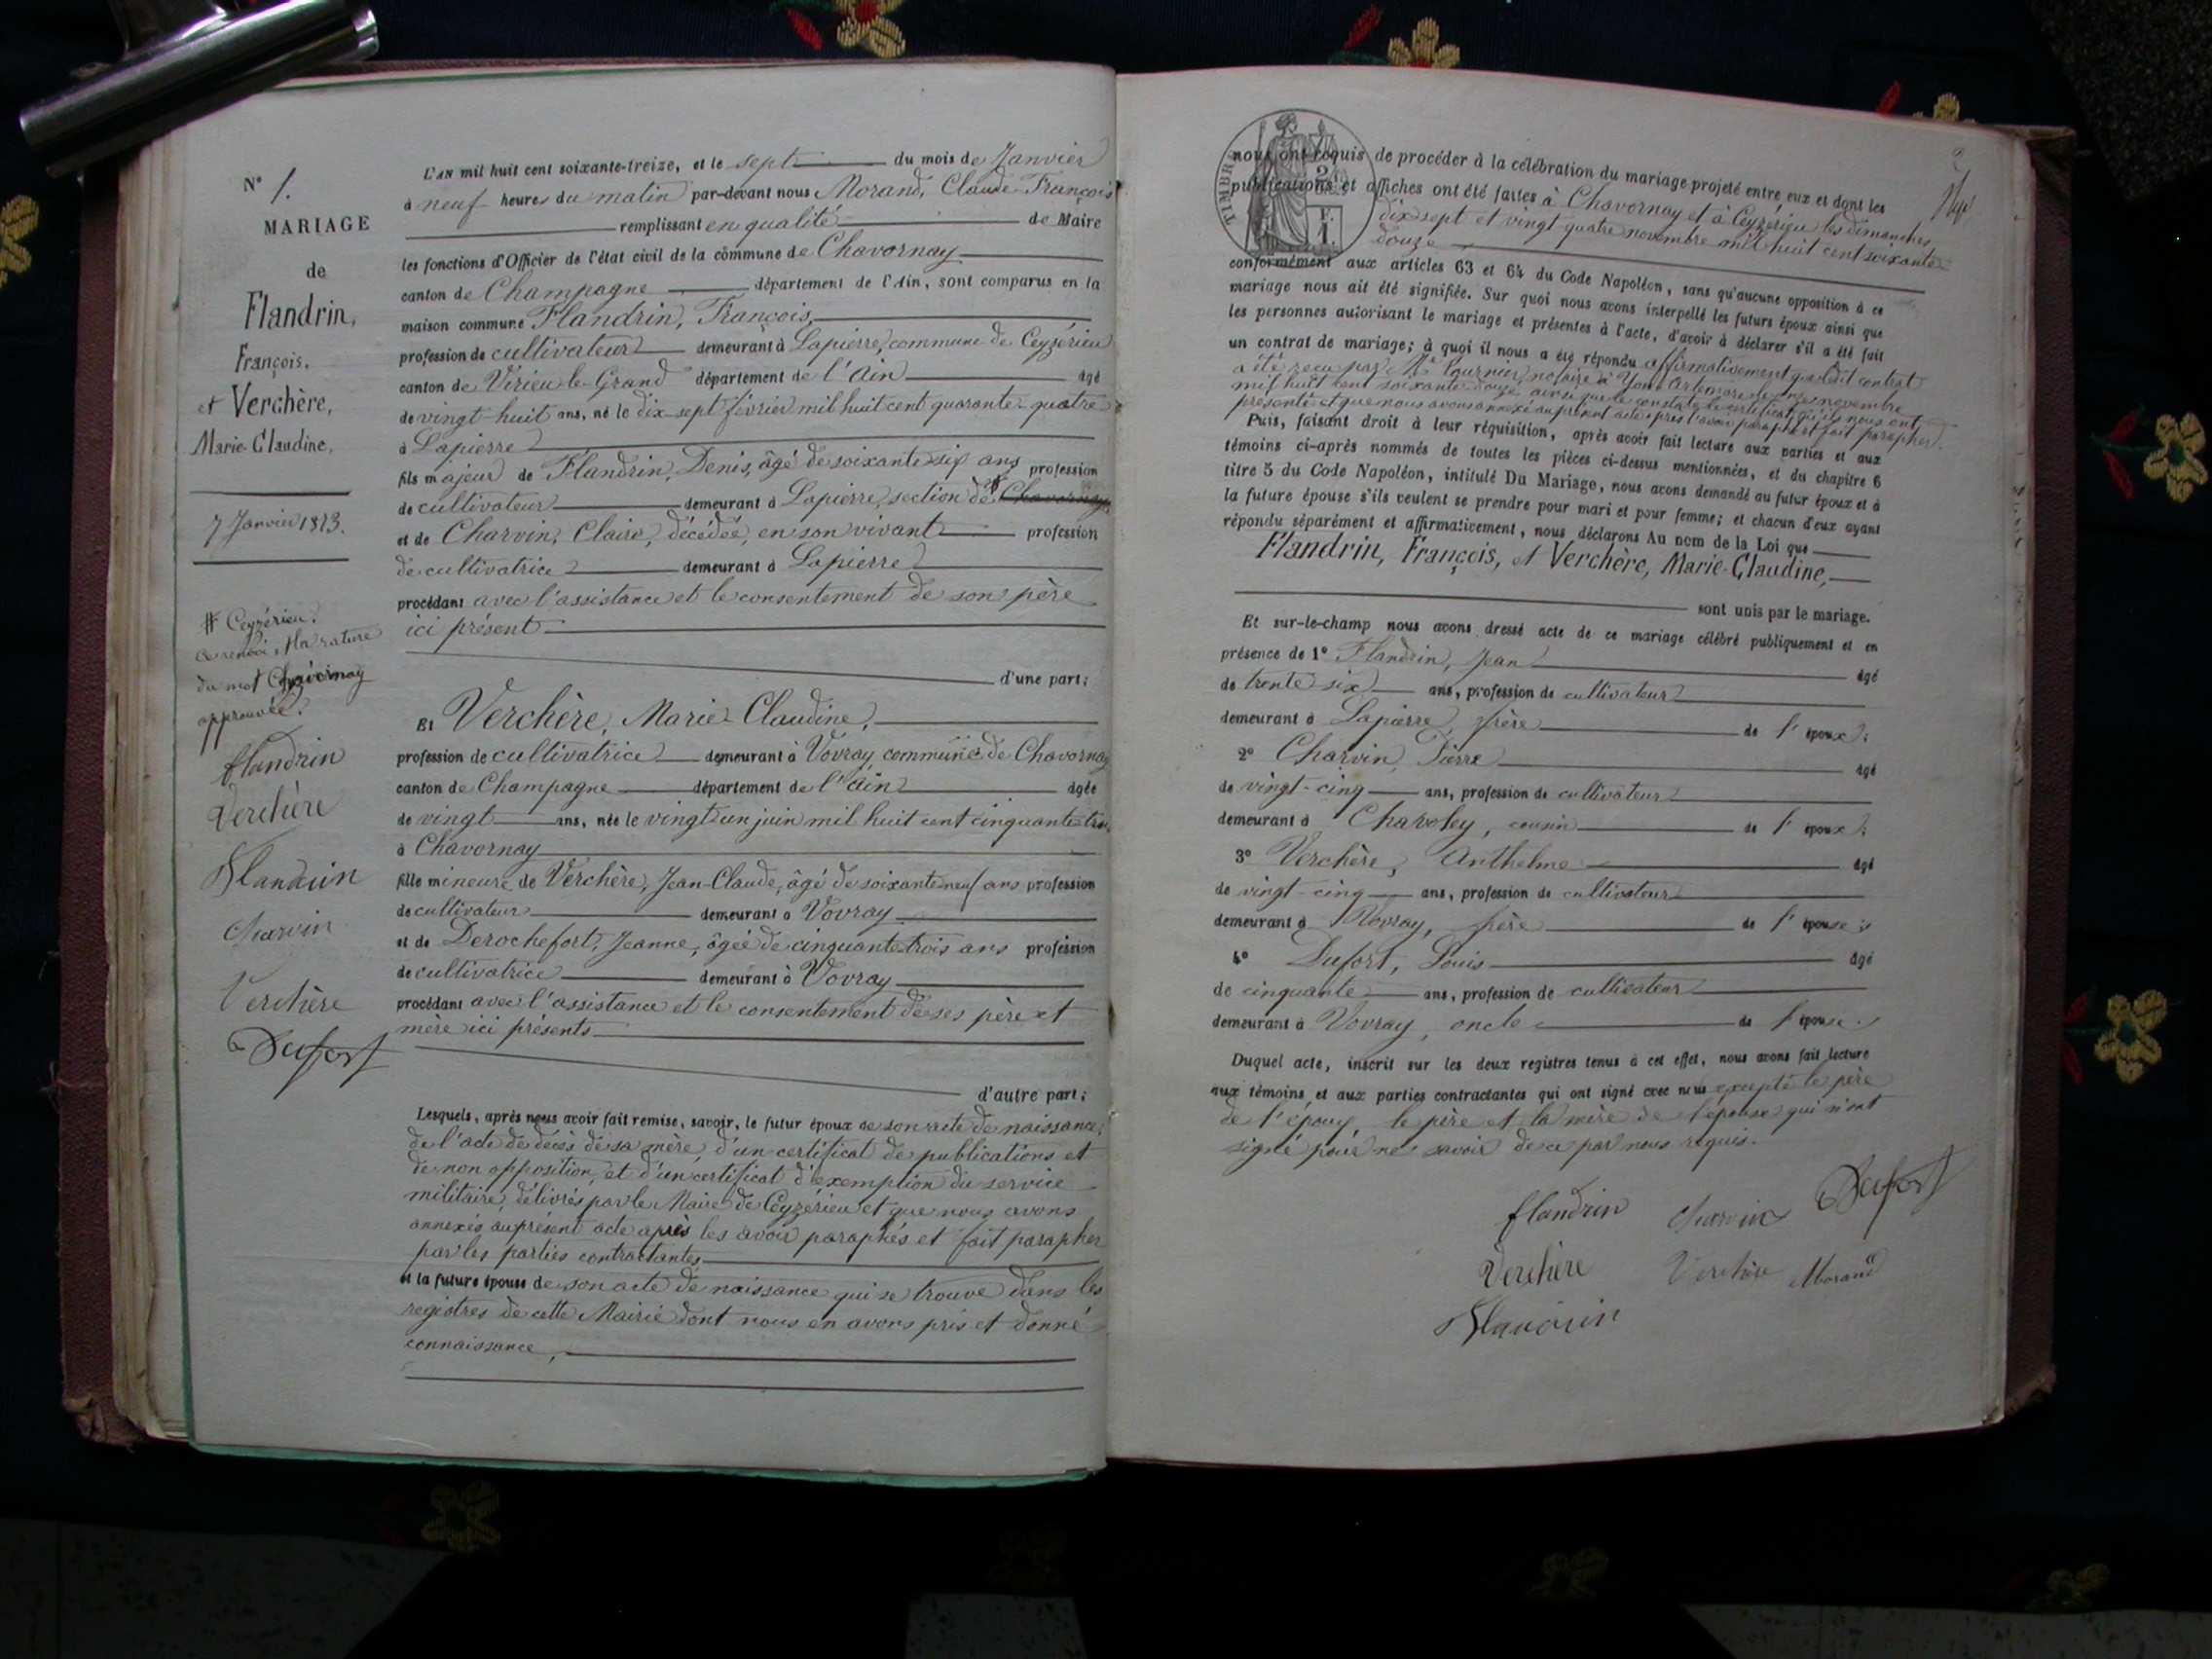 N° 1.
MARIAGE
de
Flandrin,
François.
et Verchère,
Marie-Claudine.
7 Janvier 1873.
# Ceyzérieu.
Ce renvoi et la rature
du mot Chavornay
approuvée.
flandrin
Verchère
Flandrin
Charvin
Verchère
Dufort
L'AN mil huit cent soixante-treize, et le sept du mois de Janvier
à neuf heures du matin par-devant nous Morand, Claude-François
remplissant en qualité de Maire
les fonctions d'Officier de l'état civil de la commune de Chavornay
canton de Champagne département de l'Ain, sont comparus en la
maison commune Flandrin, François,
profession de cultivateur demeurant à Lapierre, commune de Ceyzérieu
canton de Virieu-le-Grand département de l'Ain âgé
de vingt-huit ans, né le dix-sept février mil huit cent quarante-quatre
à Lapierre
fils majeur de Flandrin, Denis, âgé de soixante-six ans profession
de cultivateur demeurant à Lapierre, section de # Chavornay
et de Charvin, Claire, décédée, en son vivant profession
de cultivatrice demeurant à Lapierre
procédant avec l'assistance et le consentement de son père
ici présent
d'une part;
Et Verchère, Marie-Claudine,
profession de cultivatrice demeurant à Vovray, commune de Chavornay
canton de Champagne département de l'Ain âgée
de vingt ans, née le vingt un juin mil huit cent cinquante-trois
à Chavornay
fille mineure de Verchère, Jean-Claude, âgé de soixante neuf ans profession
de cultivateur demeurant à Vovray
et de Derochefort, Jeanne, âgée de cinquante-trois ans profession
de cultivatrice demeurant à Vovray
procédant avec l'assistance et le consentement de ses père et
mère ici présents
d'autre part;
Lesquels, après nous avoir fait remise, savoir, le futur époux de son acte de naissance,
de l'acte de décès de sa mère, d'un certificat de publications et
de non opposition, et d'un certificat d'exemption du service
militaire, délivrés par le Maire de Ceyzérieu et que nous avons
annexés au présent acte après les avoir paraphés et fait parapher
par les parties contractantes
et la future épouse de son acte de naissance qui se trouve dans les
registres de cette Mairie dont nous en avons pris et donné
connaissance,
TIMBRE
2
nous ont requis de procéder à la célébration du mariage projeté entre eux et dont les
publications et affiches ont été faites à Chavornay et à Ceyzérieu les dimanches
dix-sept et vingt-quatre novembre mil huit cent soixante-
douze
conformément aux articles 63 et 64 du Code Napoléon, sans qu'aucune opposition à ce
mariage nous ait été signifiée. Sur quoi nous avons interpellé les futurs époux ainsi que
les personnes autorisant le mariage et présentes à l'acte, d'avoir à déclarer s'il a été fait
un contrat de mariage; à quoi il nous a été répondu affirmativement que ledit contrat
a été reçu par Me Fournier, notaire à Yon-Artemare le onze novembre
mil huit cent soixante-douze ainsi que le constate le certificat qu'ils nous ont
présenté et que nous avons annexé au présent acte après l'avoir paraphé et fait parapher.
Puis, faisant droit à leur réquisition, après avoir fait lecture aux parties et aux
témoins ci-après nommés de toutes les pièces ci-dessus mentionnées, et du chapitre 6
titre 5 du Code Napoléon, intitulé Du Mariage, nous avons demandé au futur époux et à
la future épouse s'ils veulent se prendre pour mari et pour femme; et chacun d'eux ayant
répondu séparément et affirmativement, nous déclarons Au nom de la Loi que
Flandrin, François, et Verchère, Marie-Claudine,
sont unis par le mariage.
Et sur-le-champ nous avons dressé acte de ce mariage célébré publiquement et en
présence de 1° Flandrin, Jean âgé
de trente six ans, profession de cultivateur
demeurant à Lapierre, frère de l'époux;
2° Charvin, Pierre âgé
de vingt-cinq ans, profession de cultivateur
demeurant à , cousin de l'époux;
3° Verchère, Anthelme âgé
de vingt-cinq ans, profession de cultivateur
demeurant à Vovray, frère de l'épouse;
4° Dufort, Louis âgé
de cinquante ans, profession de cultivateur
demeurant à Vovray, oncle de l'épouse;
Duquel acte, inscrit sur les deux registres tenus à cet effet, nous avons fait lecture
aux témoins et aux parties contractantes qui ont signé avec nous excepté le père
de l'époux, le père et la mère de l'épouse qui n'ont
signé pour ne savoir de ce par nous requis.
flandrin Charvin Dufort
Verchère Verchère Morand
Flandrin